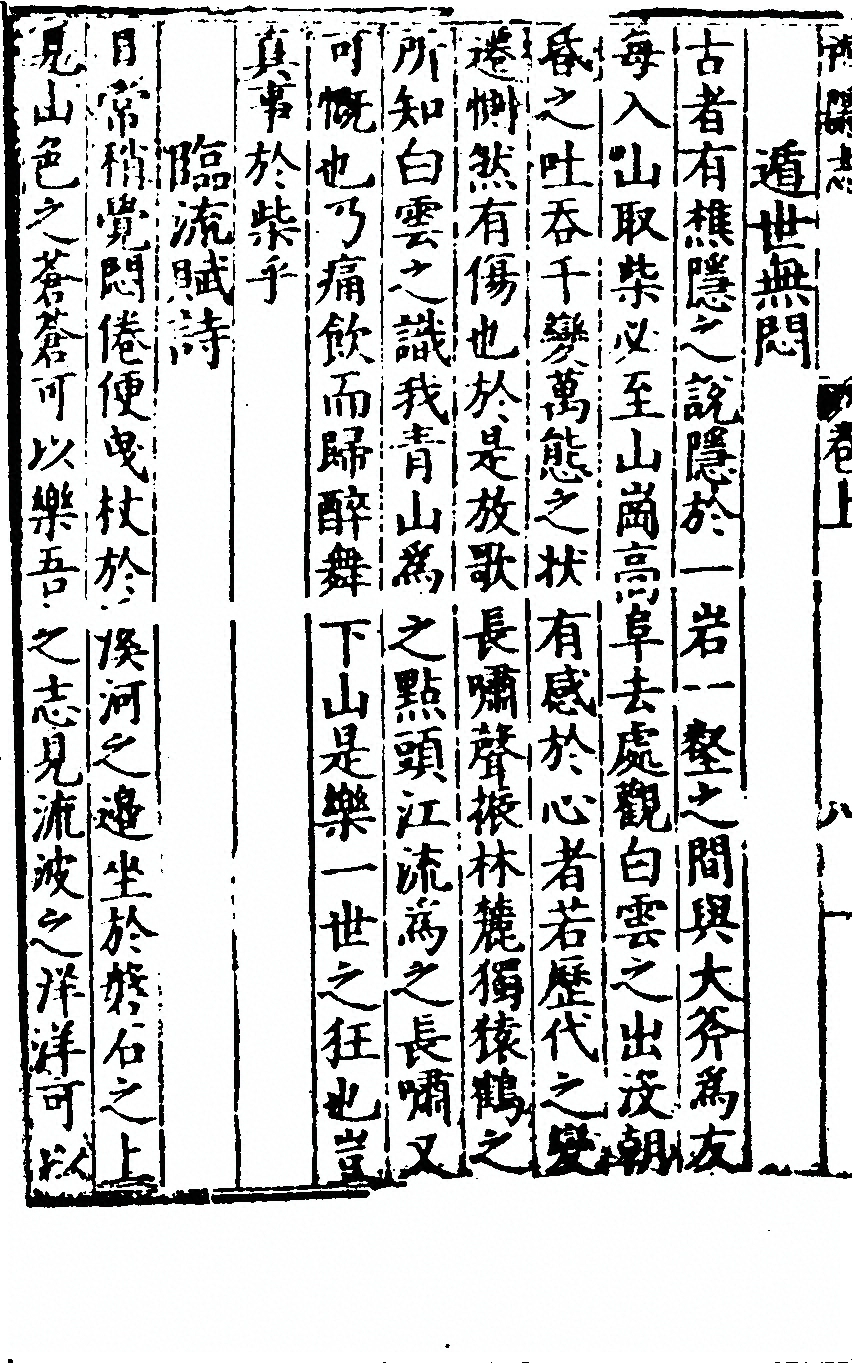 卷上
遁世無悶
古者有樵隱之說隱於一岩一壑之間與大斧為友
每入山取柴必至山崗高阜去處觀白雲之出沒朝
昏之吐吞千變萬態之狀有感於心者若歷代之變
遷惻然有傷也於是放歌長嘯聲振林麓獨猿鶴之
所知白雲之識我青山為之點頭江流為之長嘯又
可慨也乃痛飲而歸醉舞下山是樂一世之狂也豈
真事於柴乎
臨流賦詩
日常稍覺悶倦便曳杖於溪河之邊坐於磐石之上
見山色之蒼蒼可以樂吾之志見流波之洋洋可以